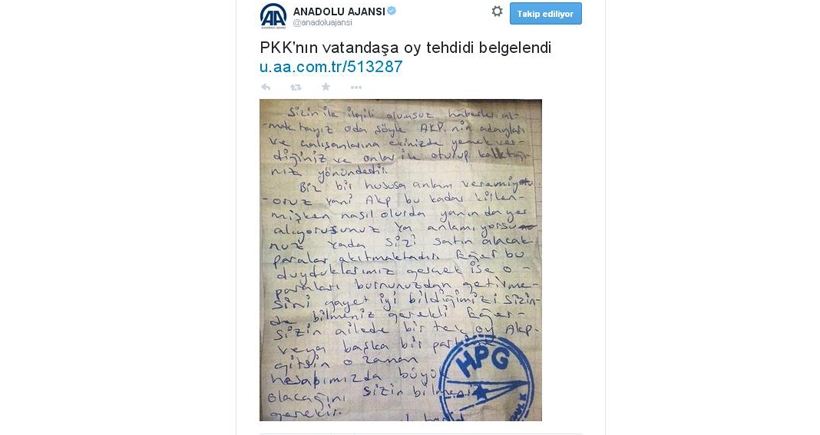 ANADOLU AJANSI
@anadoluajansi
Takip ediliyor
PKK'nın vatandaşa oy tehdidi belgelendi
u.aa.com.tr/513287
Sizin ile ilgili olumsuz haberler al-
-maktayız oda şöyle AKP.nin adayları
ve çalışanlarına evinizde yemek ver-
diğiniz ve onlar ile oturup kalktığı-
nız yönündedir.
Biz bir hususa anlam veremiyo-
-oruz yani Akp bu kadar kirlen-
mişken nasıl olurda yanında yer
alıyorsunuz ya anlamıyorsu-
nuz yada sizi satın alacak
paralar akıtmaktadır. Eğer bu
duyduklarımız gerçek ise o-
paraları burnunuzdan getirme-
sini gayet iyi bildiğimizi sizin-
de bilmeniz gerekli. Eğer-
sizin ailede bir tek oy Akp-
veya başka bir
gitsin o zaman
hesabımızda büyük
olacağını sizin
gerekir.
HPG